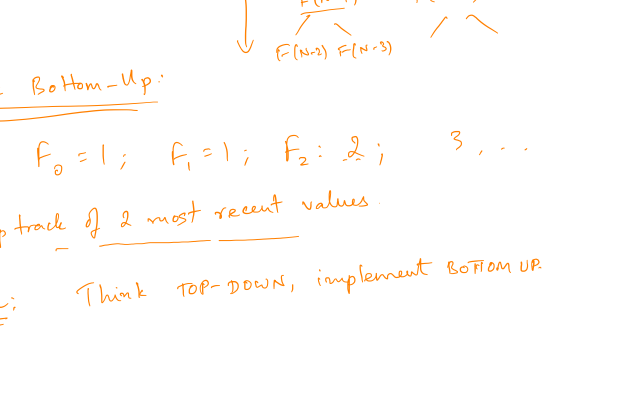 F(N-2) F(N-3)
Bottom-Up:
F₀ = 1; F₁ = 1; F₂: 2; 3, ...
track of 2 most recent values.
Think TOP-DOWN, implement BOTTOM UP.